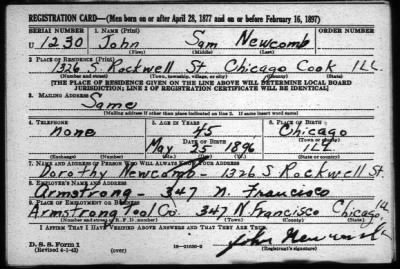 REGISTRATION CARD—(Men born on or after April 28, 1877 and on or before February 16, 1897)
SERIAL NUMBER 1. NAME (Print) ORDER NUMBER
U 1230 John Sam Newcomb
(First) (Middle) (Last)
2. PLACE OF RESIDENCE (Print)
1326 S. Rockwell St. Chicago Cook ILL
(Number and street) (Town, township, village, or city) (County) (State)
[THE PLACE OF RESIDENCE GIVEN ON THE LINE ABOVE WILL DETERMINE LOCAL BOARD
JURISDICTION; LINE 2 OF REGISTRATION CERTIFICATE WILL BE IDENTICAL]
3. MAILING ADDRESS
Same
[Mailing address if other than place indicated on line 2. If same insert word same]
4. TELEPHONE 5. AGE IN YEARS 6. PLACE OF BIRTH
none 45 Chicago
DATE OF BIRTH (Town or county)
May 25 1896 ILL
(Exchange) (Number) (Mo.) (Day) (Yr.) (State or country)
7. NAME AND ADDRESS OF PERSON WHO WILL ALWAYS KNOW YOUR ADDRESS
Dorothy Newcomb - 1326 S. Rockwell St.
8. EMPLOYER'S NAME AND ADDRESS
Armstrong - 347 N. Francisco
9. PLACE OF EMPLOYMENT OR BUSINESS
Armstrong Tool Co. 347 N. Francisco Chicago, Ill.
(Number and street or R. F. D. number) (Town) (County) (State)
I AFFIRM THAT I HAVE VERIFIED ABOVE ANSWERS AND THAT THEY ARE TRUE.
D. S. S. Form 1
(Revised 4-1-42) (over) John Newcomb
(Registrant's signature)